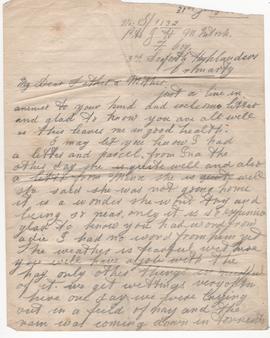 No S/ 1132
F Coy.
3rd Seaforth Highlanders
Cromarty
My Dear Father & Mother
just a line in
answer to your kind and welcome letter
and glad to know you are all well
as this leaves me in good health.
I may let you know I had
a letter and parcel from Ina the
other day she is quite well and also
a letter from she is quite well
she said she was not going home
it is a wonder she wont try and
being so near only it is so expensive
glad to know you had word from
I had no word from him yet
The weather is fearful wet here
you will have a job with the
hay only other things
of it. we get wettings very often
here one day we were lying
out in a field of hay and the
rain was coming down in torrents